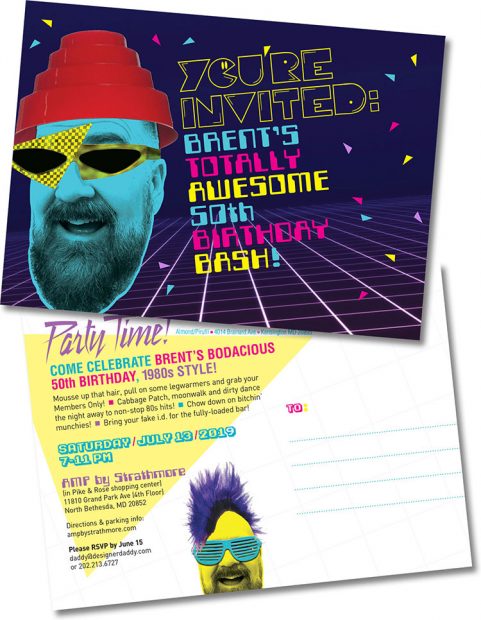 YOU'RE
INVITED:
BRENT'S
TOTALLY
AWESOME
50th
BIRTHDAY
BASH!
Party Time!
Almond/Pirulli ▪ 4014 Brainard Ave ▪ Kensington MD 20895
COME CELEBRATE BRENT'S BODACIOUS
50th BIRTHDAY, 1980s STYLE!
Mousse up that hair, pull on some legwarmers and grab your
Members Only! ▪ Cabbage Patch, moonwalk and dirty dance
the night away to non-stop 80s hits! ▪ Chow down on bitchin'
munchies! ▪ Bring your fake i.d. for the fully-loaded bar!
TO:
SATURDAY/JULY 13/2019
7-11 PM
AMP by Strathmore
(in Pike & Rose shopping center)
11810 Grand Park Ave (4th Floor)
North Bethesda, MD 20852
Directions & parking info:
ampbystrathmore.com
Please RSVP by June 15
daddy@designerdaddy.com
or 202.213.6727